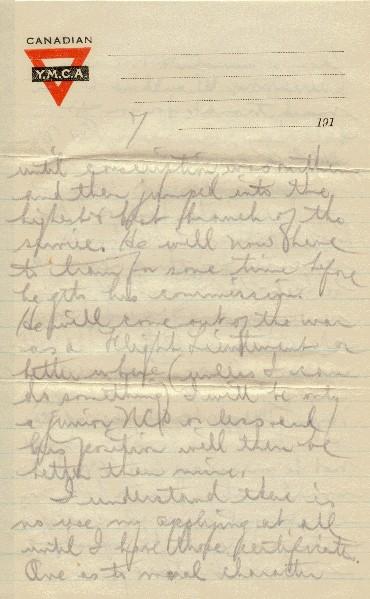 CANADIAN
Y.M.C.A.
191
7
until conscription was
and then jumped into the
highest & best branch of the
service. He will now have
to train for some time before
he gets his commission.
He will come out of the war
as a Flight Lieutenant or
better where (unless I can
do something) I will be only
a junior NCO or less and
his position will then be
better than mine.
I understand there is
no use my applying at all
until I have those certificates.
One as to moral character